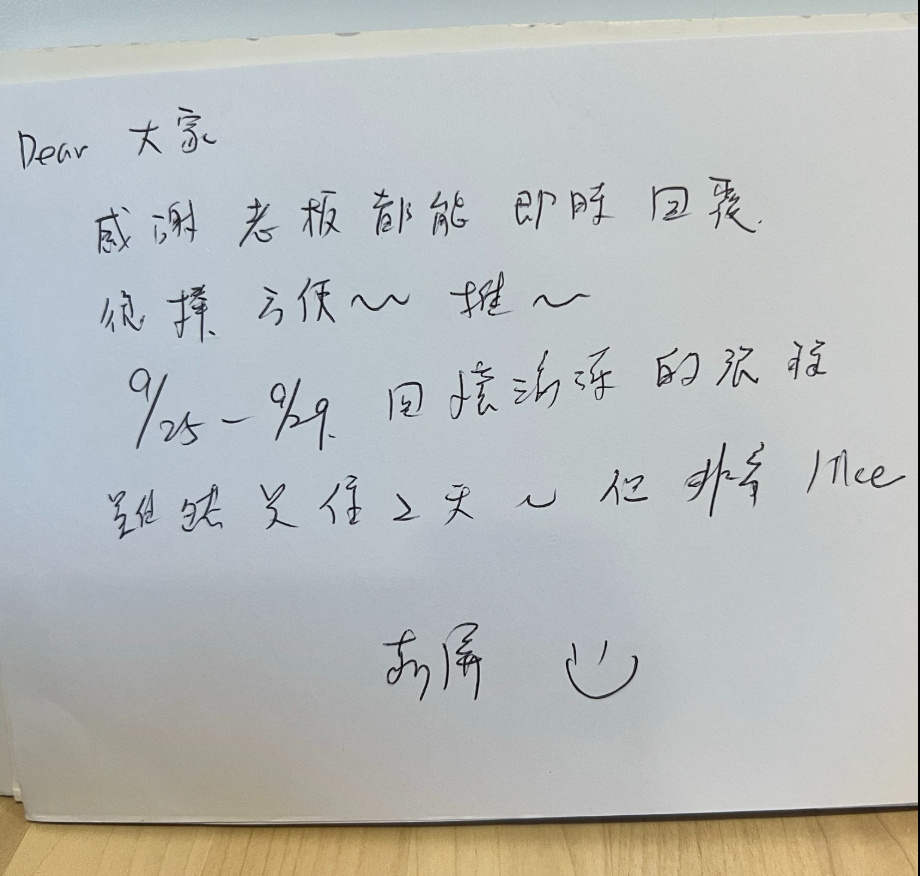 Dear 大家
感謝老板都能即時回覆.
很捧方便~~ 推~
9/25-9/29. 回憶澎湃的旅程
雖然只住2天~但非常 nice